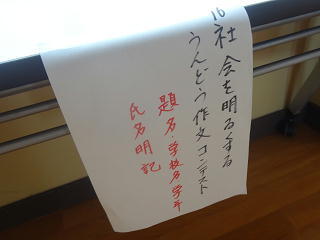 16 社会を明るくする
うんどう作文コンテスト
題名・学校名学年
氏名明記